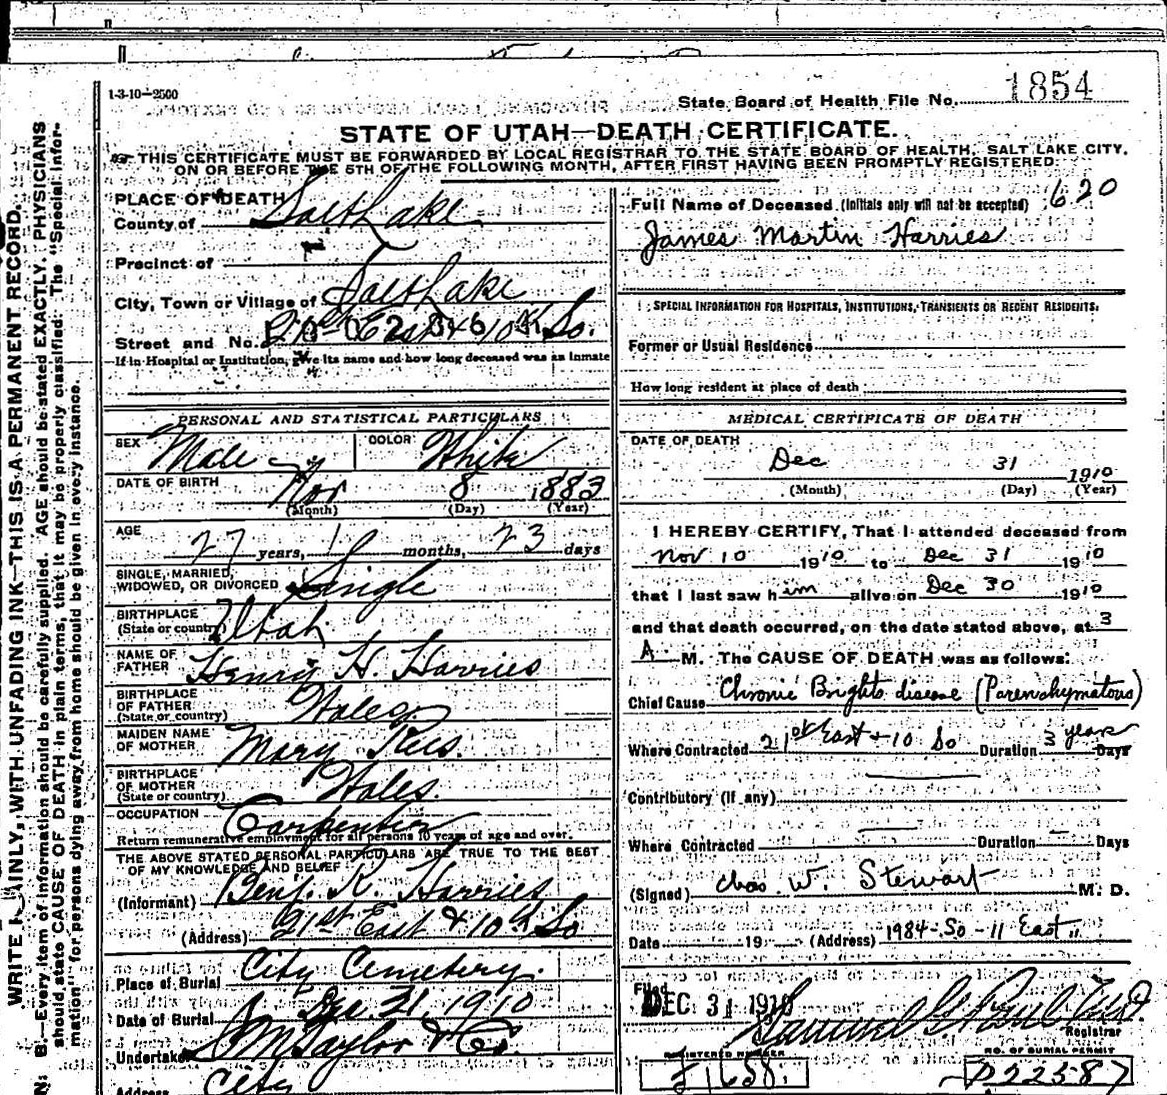 1-3-10—2500
State Board of Health File No. 1854
STATE OF UTAH—DEATH CERTIFICATE.
THIS CERTIFICATE MUST BE FORWARDED BY LOCAL REGISTRAR TO THE STATE BOARD OF HEALTH, SALT LAKE CITY,
ON OR BEFORE THE 5TH OF THE FOLLOWING MONTH, AFTER FIRST HAVING BEEN PROMPTLY REGISTERED.
WRITE PLAINLY, WITH UNFADING INK—THIS IS A PERMANENT RECORD.
N. B.—Every item of information should be carefully supplied. AGE should be stated EXACTLY. PHYSICIANS
should state CAUSE OF DEATH in plain terms, that it may be properly classified. The "Special Infor-
mation" for persons dying away from home should be given in every instance.
PLACE OF DEATH
County of Salt Lake
Precinct of
City, Town or Village of Salt Lake
Street and No. 21st East & 10th So.
If in Hospital or Institution, give its name and how long deceased was an inmate
620
Full Name of Deceased (Initials only will not be accepted)
James Martin Harries
SPECIAL INFORMATION FOR HOSPITALS, INSTITUTIONS, TRANSIENTS OR RECENT RESIDENTS:
Former or Usual Residence
How long resident at place of death
PERSONAL AND STATISTICAL PARTICULARS
SEX Male COLOR White
DATE OF BIRTH Nov 8 1883
(Month) (Day) (Year)
AGE 27 years, 1 months, 23 days
SINGLE, MARRIED,
WIDOWED, OR DIVORCED Single
BIRTHPLACE
(State or country) Utah
NAME OF
FATHER Henry H. Harries
BIRTHPLACE
OF FATHER
(State or country) Wales
MAIDEN NAME
OF MOTHER Mary Rees.
BIRTHPLACE
OF MOTHER
(State or country) Wales.
OCCUPATION Carpenter
Return remunerative employment for all persons 10 years of age and over.
THE ABOVE STATED PERSONAL PARTICULARS ARE TRUE TO THE BEST
OF MY KNOWLEDGE AND BELIEF
(Informant) Benj. R. Harries
(Address) 21st East & 10th So
Place of Burial City Cemetery.
Date of Burial Dec. 31, 1910
Undertaker Taylor & Co.
Address City
MEDICAL CERTIFICATE OF DEATH
DATE OF DEATH
Dec 31 1910
(Month) (Day) (Year)
I HEREBY CERTIFY, That I attended deceased from
Nov 10 1910 to Dec 31 1910
that I last saw him alive on Dec 30 1910
and that death occurred, on the date stated above, at 3
A. M. The CAUSE OF DEATH was as follows:
Chief Cause Chronic Brights disease (Parenchymatous)
Where Contracted 21st East + 10 So Duration 3 years Days
Contributory (if any)
Where Contracted Duration Days
(Signed) Chas W. Stewart M. D.
Date 19 (Address) 1984-So-11 East
Filed
DEC 31 1910
Registrar
REGISTERED NUMBER
1658
NO. OF BURIAL PERMIT
P22587